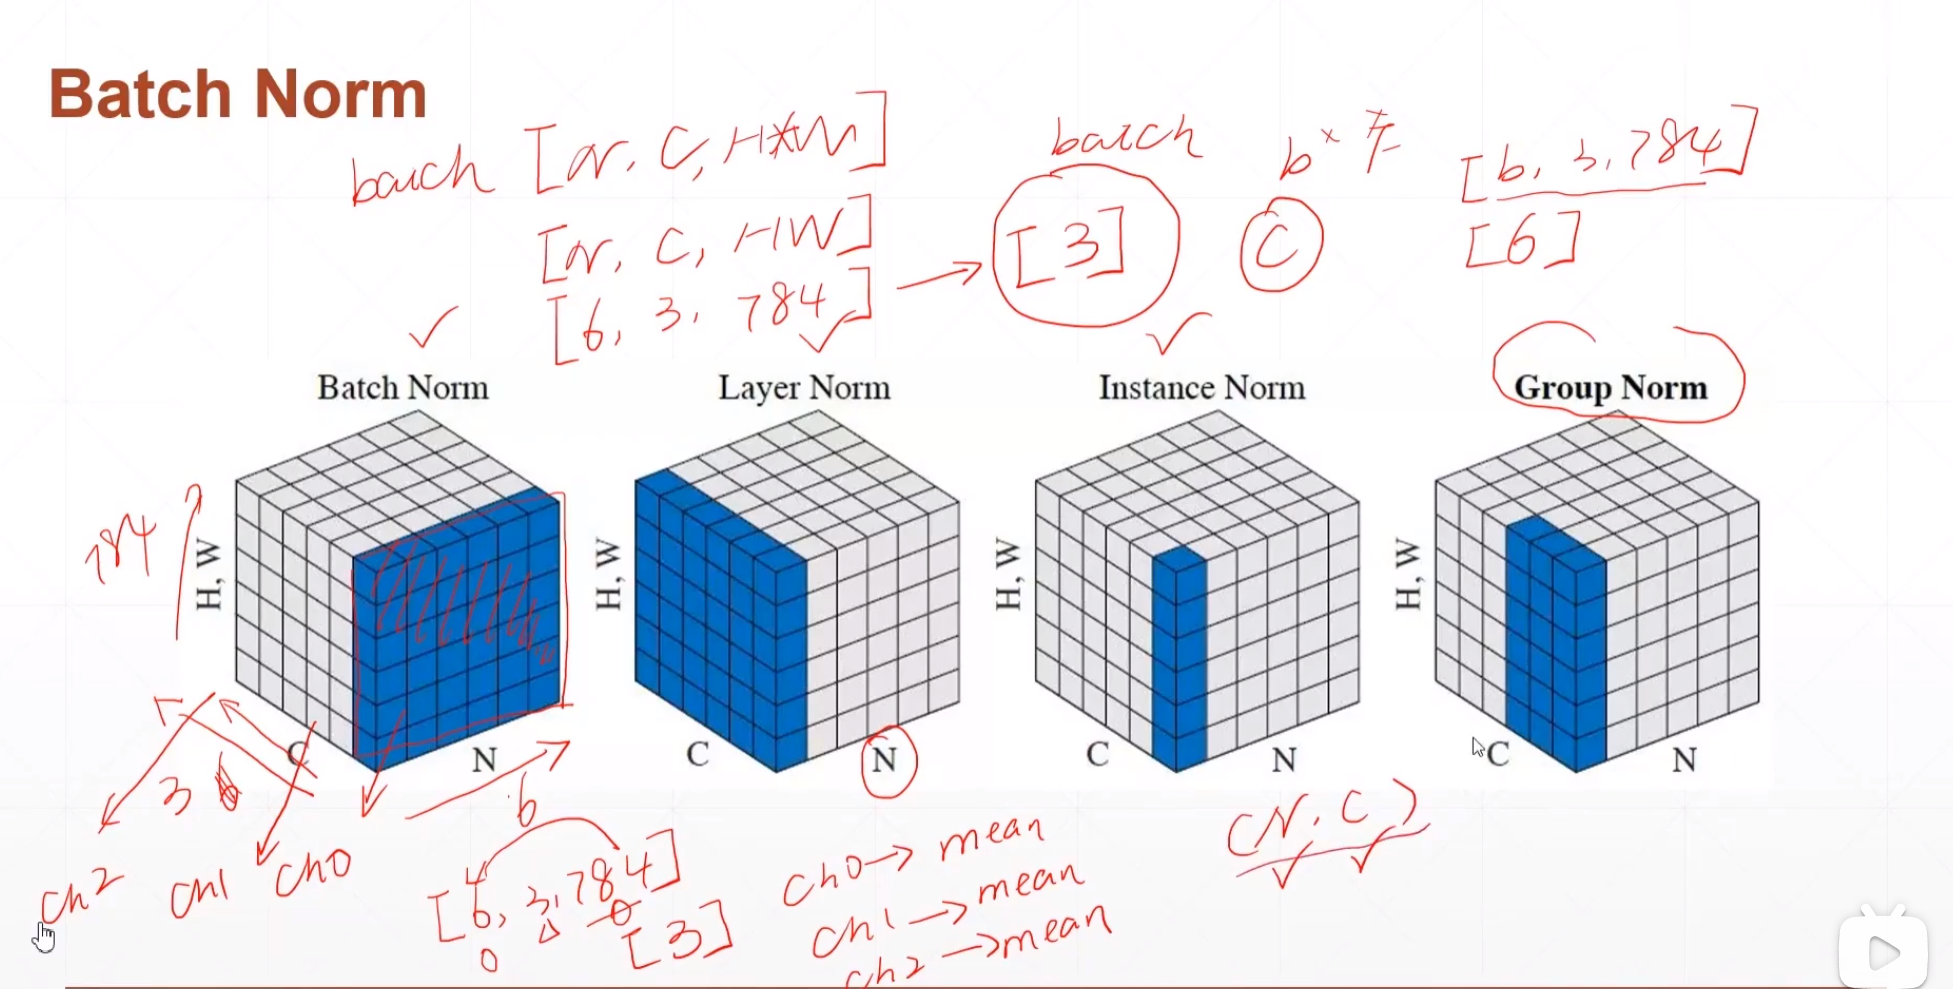 Batch Norm
batch [N, C, H*W]
[N, C, HW]
[6, 3, 784]
batch
[3]
C
[6, 3, 784]
[6]
Batch Norm
Layer Norm
Instance Norm
Group Norm
784
H, W
C
N
3
6
ch2
ch1
ch0
H, W
C
N
H, W
C
N
H, W
C
N
[6, 3, 784]
0
[3]
ch0→ mean
ch1→ mean
ch2→ mean
(N, C)